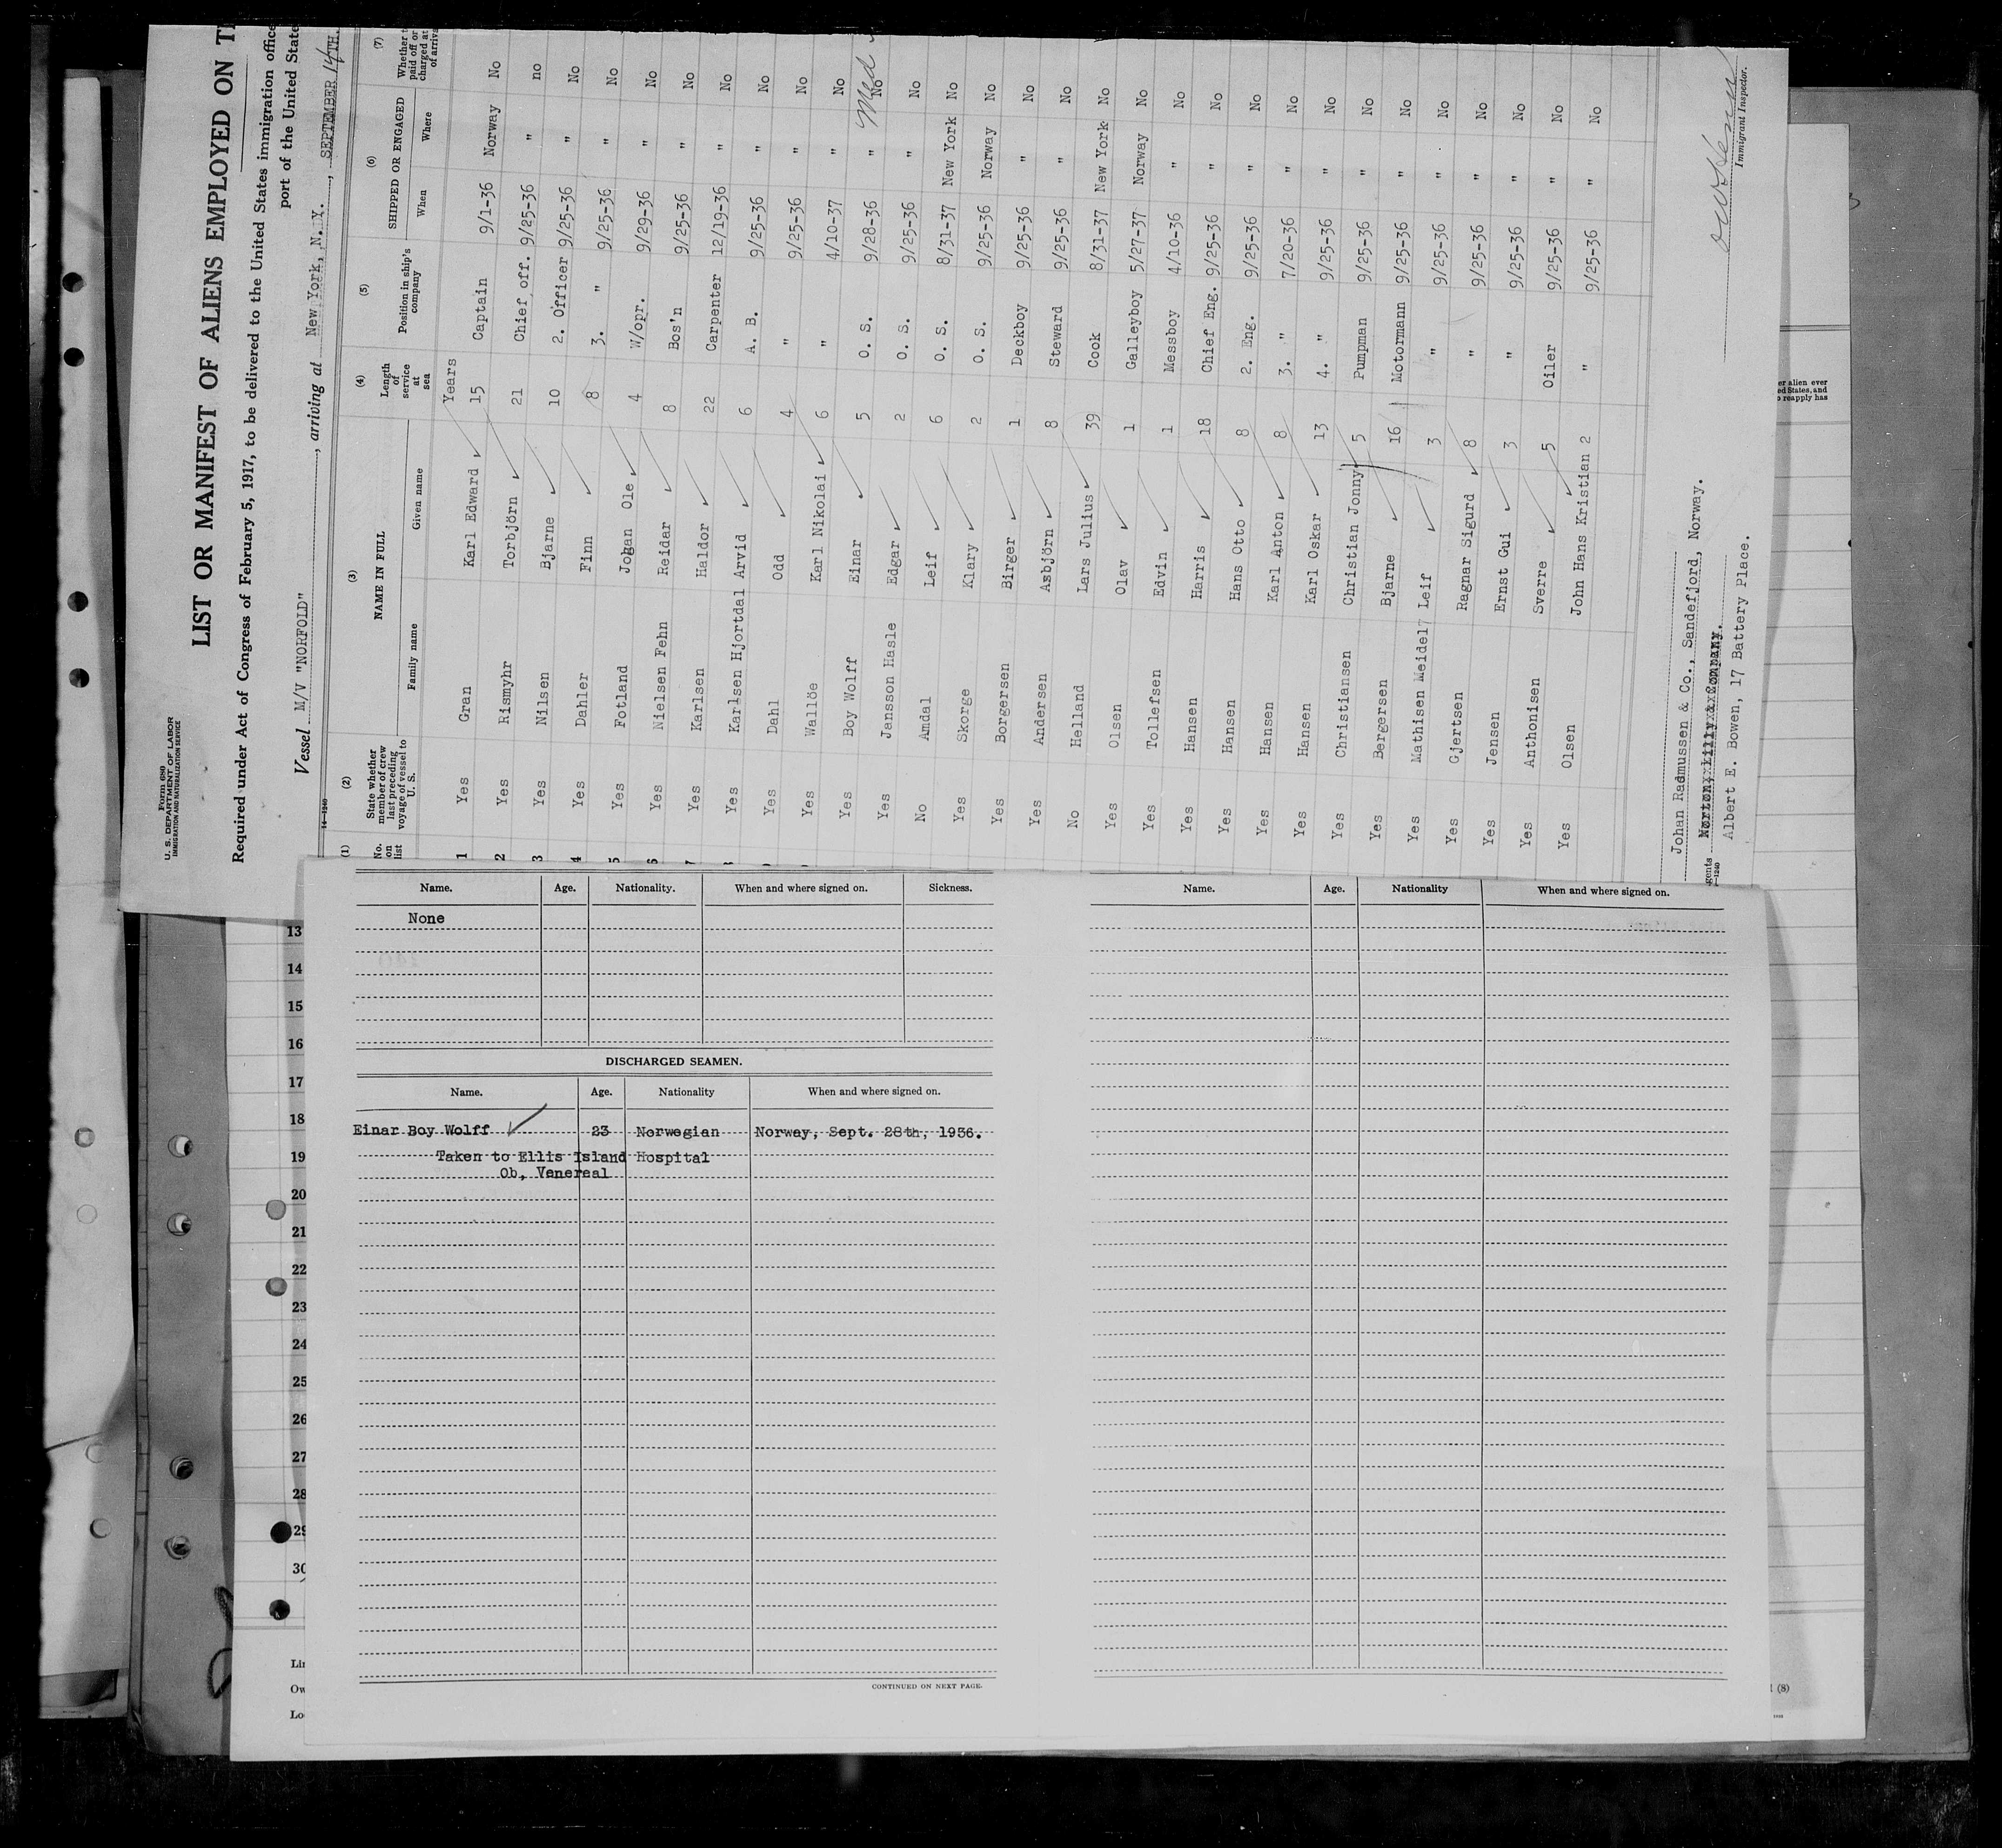 Form 680
U. S. DEPARTMENT OF LABOR
IMMIGRATION AND NATURALIZATION SERVICE
LIST OR MANIFEST OF ALIENS EMPLOYED ON T
Required under Act of Congress of February 5, 1917, to be delivered to the United States immigration office
port of the United State
Vessel M/V "NORFOLD", arriving at New York, N.Y., SEPTEMBER 14TH.
14—1240
(1) (2) (3) (4) (5) (6) (7)
No. on list
State whether member of crew last preceding voyage of vessel to U. S.
NAME IN FULL
Family name Given name
Length of service at sea
Position in ship's company
SHIPPED OR ENGAGED
When Where
Whether t paid off or charged at of arriva
Years
1 Yes Gran Karl Edward 15 Captain 9/1-36 Norway No
2 Yes Rismyhr Torbjörn 21 Chief off. 9/25-36 " no
3 Yes Nilsen Bjarne 10 2. Officer 9/25-36 " No
4 Yes Dahler Finn 8 3. " 9/25-36 " No
5 Yes Fotland Johan Ole 4 W/opr. 9/29-36 " No
6 Yes Nielsen Fehn Reidar 8 Bos'n 9/25-36 " No
7 Yes Karlsen Haldor 22 Carpenter 12/19-36 " No
Yes Karlsen Hjortdal Arvid 6 A. B. 9/25-36 " No
Yes Dahl Odd 4 " 9/25-36 " No
Yes Wallöe Karl Nikolai 6 " 4/10-37 " No
Yes Boy Wolff Einar 5 O. S. 9/28-36 " No Med
Yes Jansson Hasle Edgar 2 O. S. 9/25-36 " No
No Amdal Leif 6 O. S. 8/31-37 New York No
Yes Skorge Klary 2 O. S. 9/25-36 Norway No
Yes Borgersen Birger 1 Deckboy 9/25-36 " No
Yes Andersen Asbjörn 8 Steward 9/25-36 " No
No Helland Lars Julius 39 Cook 8/31-37 New York No
Yes Olsen Olav 1 Galleyboy 5/27-37 Norway No
Yes Tollefsen Edvin 1 Messboy 4/10-36 " No
Yes Hansen Harris 18 Chief Eng. 9/25-36 " No
Yes Hansen Hans Otto 8 2. Eng. 9/25-36 " No
Yes Hansen Karl Anton 8 3. " 7/20-36 " No
Yes Hansen Karl Oskar 13 4. " 9/25-36 " No
Yes Christiansen Christian Jonny 5 Pumpman 9/25-36 " No
Yes Bergersen Bjarne 16 Motormann 9/25-36 " No
Yes Mathisen Meidell Leif 3 " 9/25-36 " No
Yes Gjertsen Ragnar Sigurd 8 " 9/25-36 " No
Yes Jensen Ernst Gui 3 " 9/25-36 " No
Yes Anthonisen Sverre 5 Oiler 9/25-36 " No
Yes Olsen John Hans Kristian 2 " 9/25-36 " No
Johan Rasmussen & Co., Sandefjord, Norway.
gents Norton, Lilly & Company.
Albert E. Bowen, 17 Battery Place.
Immigrant Inspector.
er alien ever
ed States, and
o reapply has
Name. Age. Nationality. When and where signed on. Sickness.
None
DISCHARGED SEAMEN.
Name. Age. Nationality When and where signed on.
Einar Boy Wolff 23 Norwegian Norway, Sept. 28th, 1936.
Taken to Ellis Island Hospital
Ob, Venereal
CONTINUED ON NEXT PAGE.
Name. Age. Nationality When and where signed on.
13
14
15
16
17
18
19
20
21
22
23
24
25
26
27
28
29
30
Lin
Ow
Lo
(8)